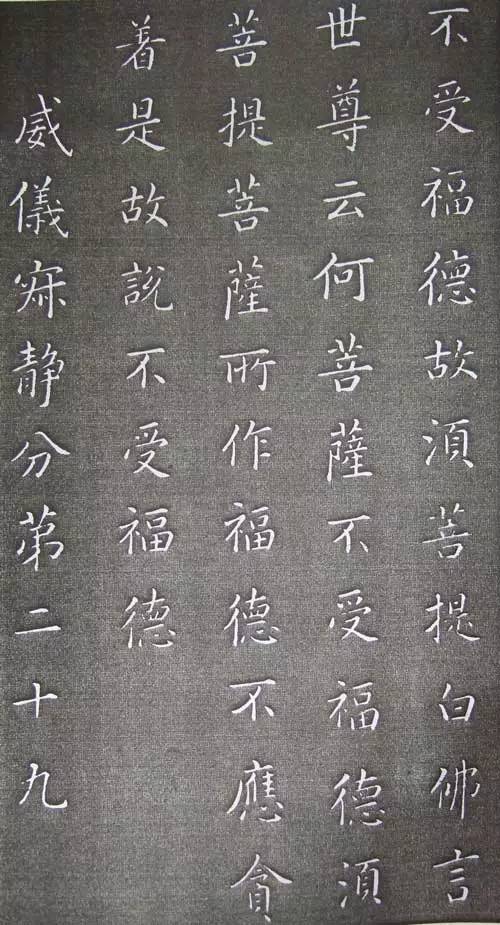 不受福德故須菩提白佛言
世尊云何菩薩不受福德須
菩提菩薩所作福德不應貪
着是故說不受福德
威儀寂静分苐二十九